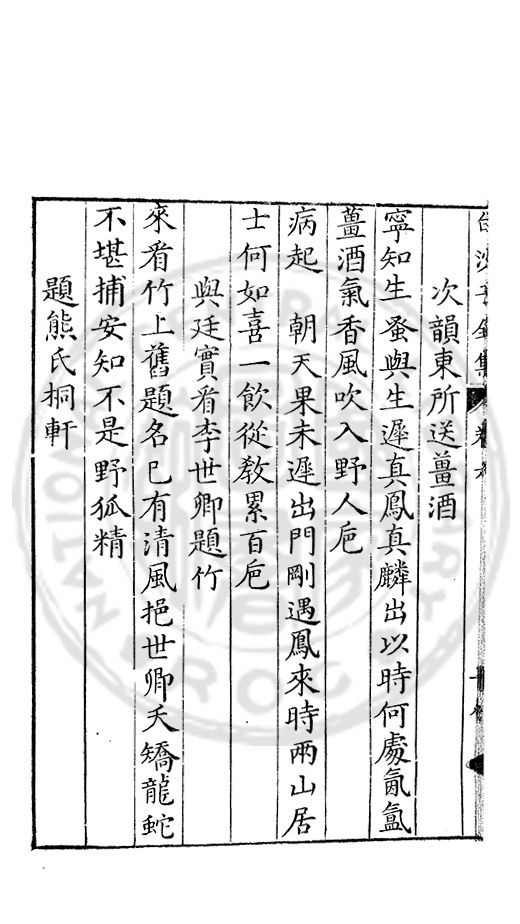 次韻東所送薑酒
寧知生蚤與生遲真鳳真麟出以時何處氤氳
薑酒氣香風吹入野人巵
病起 朝天果未遲出門剛遇鳳來時兩山居
士何如喜一飲從教累百巵
與廷實看李世卿題竹
來看竹上舊題名已有清風挹世卿夭矯龍蛇
不堪捕安知不是野狐精
題熊氏桐軒